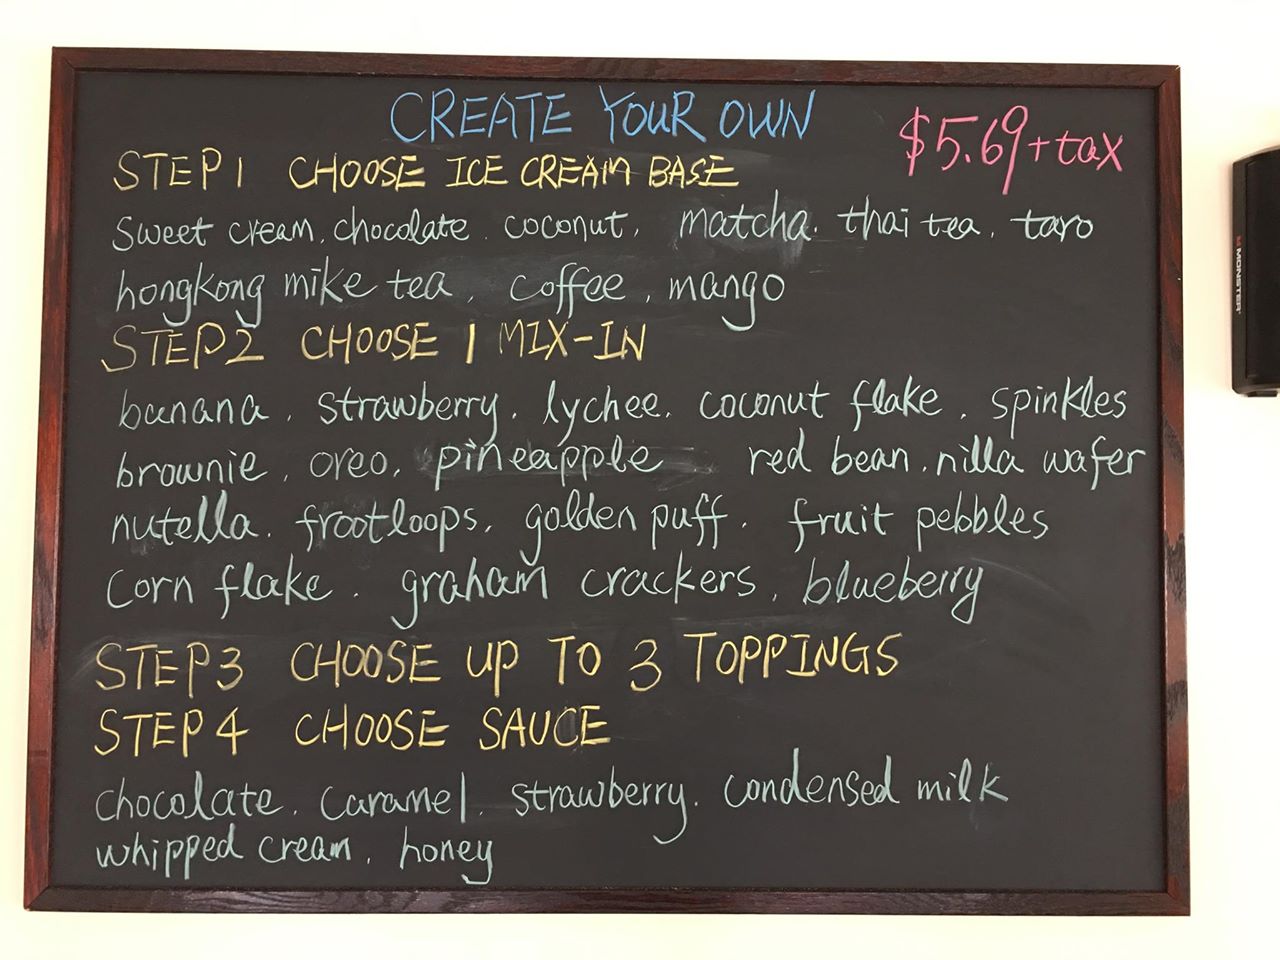 CREATE YOUR OWN
$5.69+tax
STEP1 CHOOSE ICE CREAM BASE
Sweet cream. chocolate. coconut. matcha. thai tea. taro
hongkong mike tea. coffee. mango
STEP2 CHOOSE 1 MIX-IN
banana. strawberry. lychee. coconut flake. spinkles
brownie. oreo. pineapple red bean. nilla wafer
nutella. frootloops. golden puff. fruit pebbles
Corn flake. graham crackers. blueberry
STEP3 CHOOSE UP TO 3 TOPPINGS
STEP4 CHOOSE SAUCE
chocolate. caramel. strawberry. condensed milk
whipped cream. honey
MONSTER